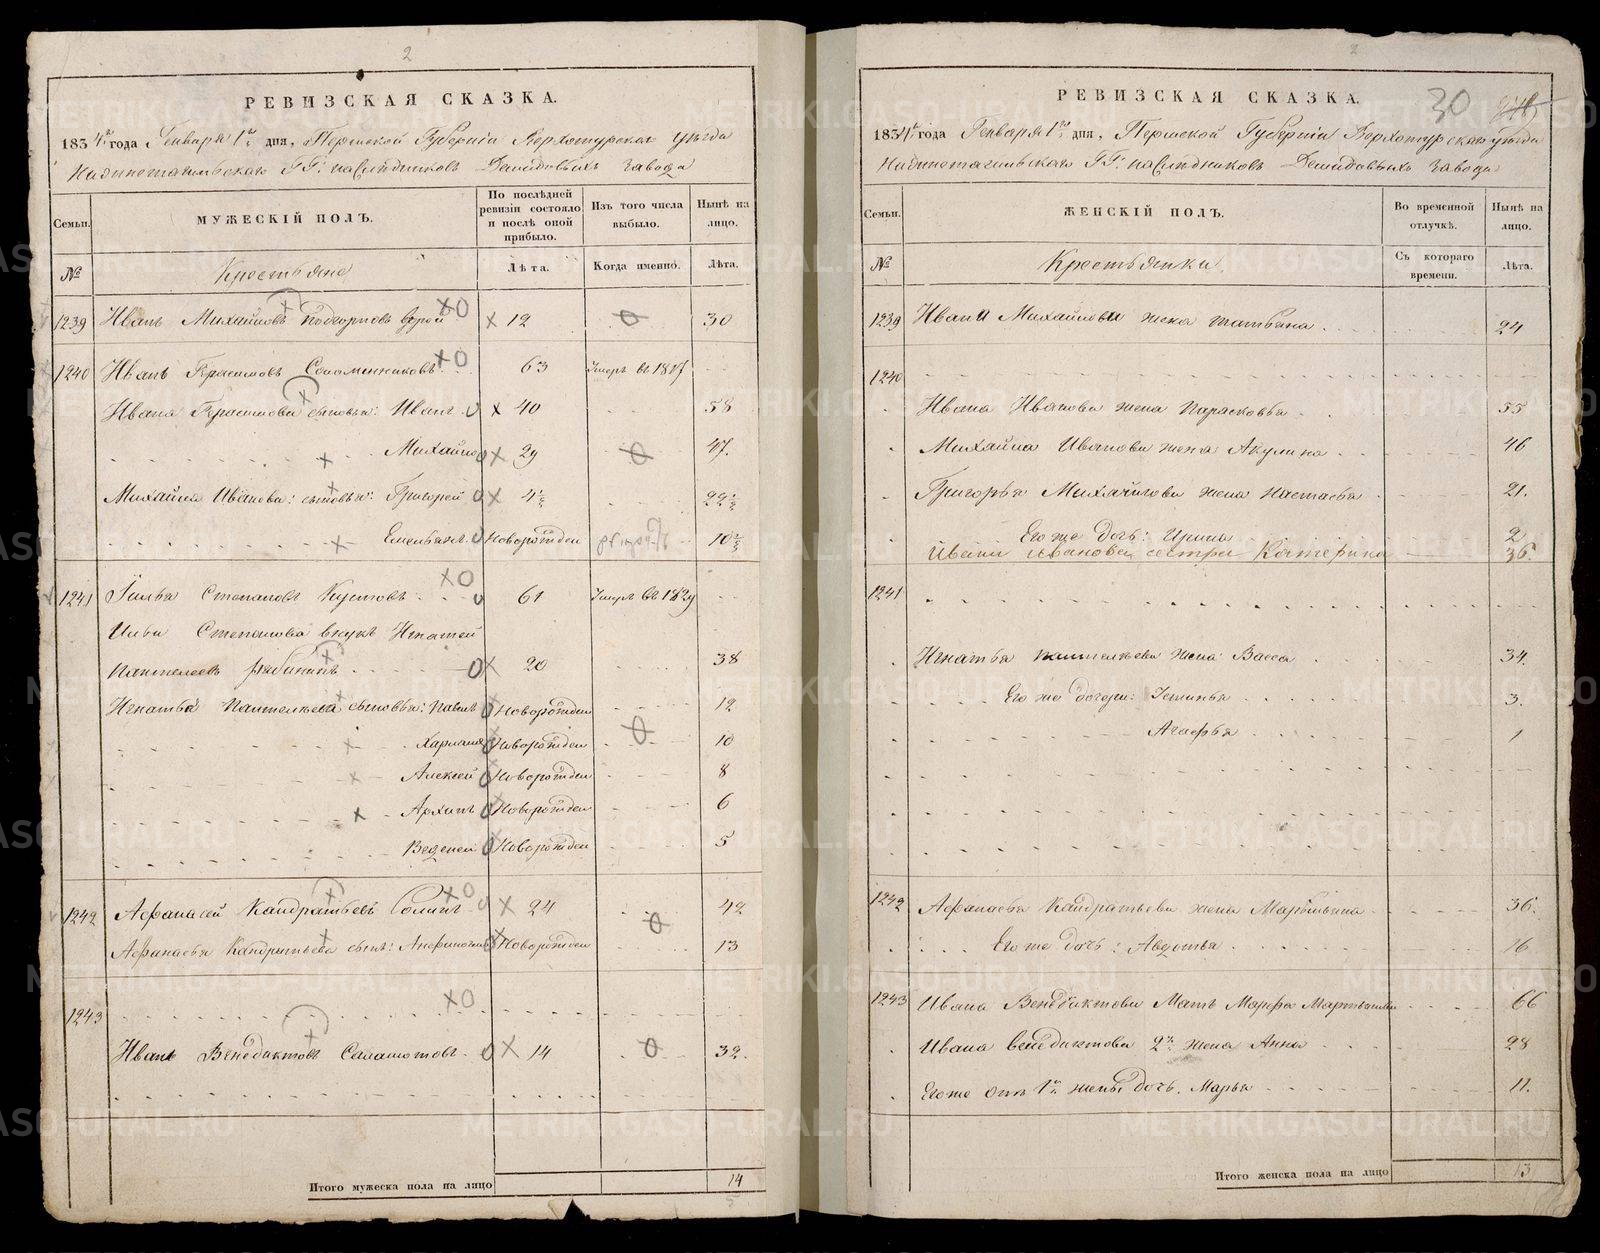 2
РЕВИЗСКАЯ СКАЗКА.
1834 года Генваря 1 дня, Пермской Губерніи Верхотурскаго уѣзда
Нижнетагильскаго ГГ: наслѣдниковъ Демидовыхъ завода
Семьи.
МУЖЕСКІЙ ПОЛЪ.
По послѣдней ревизіи состояло и послѣ оной прибыло.
Изъ того числа выбыло.
Нынѣ на лицо.
№
Крестьяне
Лѣта.
Когда именно.
Лѣта.
1239 Иванъ Михайловъ 12 30
1240 Иванъ Герасимовъ Соломенниковъ 63 Умеръ въ 1827
Ивана Герасимова сыновья: Иванъ 40 58
Михайло 29 47.
Михайла Иванова: сыновья: Григорей 4½ 22½
Емельянъ Новорожден 10½
1241 Степановъ 61 Умеръ въ 1829
Ильи Степанова внукъ Игнатей
Пантелеевъ Рябининъ 20 38
Игнатья Пантелѣева сыновья: Павелъ Новорожден 12
Новорожден 10
Алексей Новорожден 8
Архипъ Новорожден 6
Веденей Новорожден 5
1242 Афанасей Кандратьевъ 24 42
Афанасья Кандратьева сынъ: Новорожден 13
1243
Иванъ Венедиктовъ 14 32.
Итого мужеска пола на лицо 14
2
РЕВИЗСКАЯ СКАЗКА.
30
1834 года Генваря 1 дня, Пермской Губерніи Верхотурскаго уѣзда
Нижнетагильскаго ГГ: наслѣдниковъ Демидовыхъ завода
Семьи.
ЖЕНСКІЙ ПОЛЪ.
Во временной отлучкѣ.
Нынѣ на лицо.
№
Крестьянки
Съ котораго времени.
Лѣта.
1239 Ивана Михайлова жена Татьяна 24
1240
Ивана Иванова жена Парасковья 55
Михайла Иванова жена Акулина 46
Григорья Михайлова жена Настасья 21.
Его же дочь: Ирина 2
Ивана Иванова сестра Катерина 36.
1241
Игнатья Пантелѣева жена Васса 34.
Его же дочери: Устинья 3.
Агафья 1
1242 Афанасья Кандратьева жена 36.
Его же дочь: Авдотья 16
1243 Ивана Венедиктова Мать Марфа 66
Ивана Венедиктова 2я жена Анна 28
Его же отъ 1й жены дочь. Марья 11.
Итого женска пола на лицо 13
METRIKI.GASO-URAL.RU